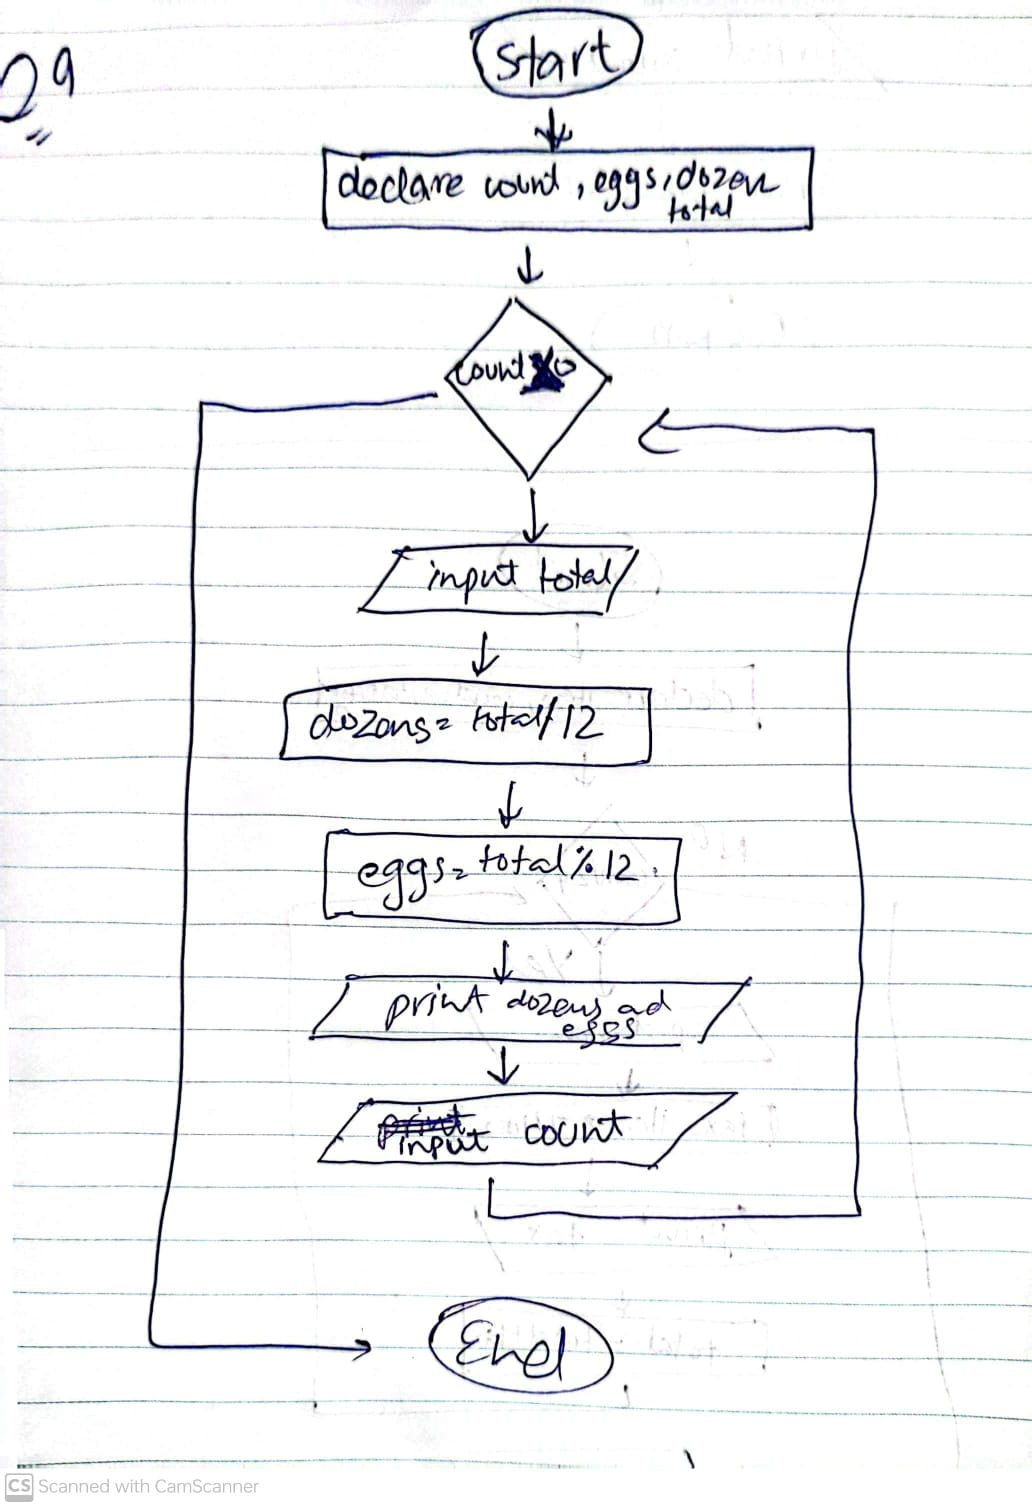 Q9
Start
declare count, eggs, dozen
total
count 0
input total
dozens = total/12
eggs = total % 12
print dozens ad
eggs
input count
End
CS Scanned with CamScanner